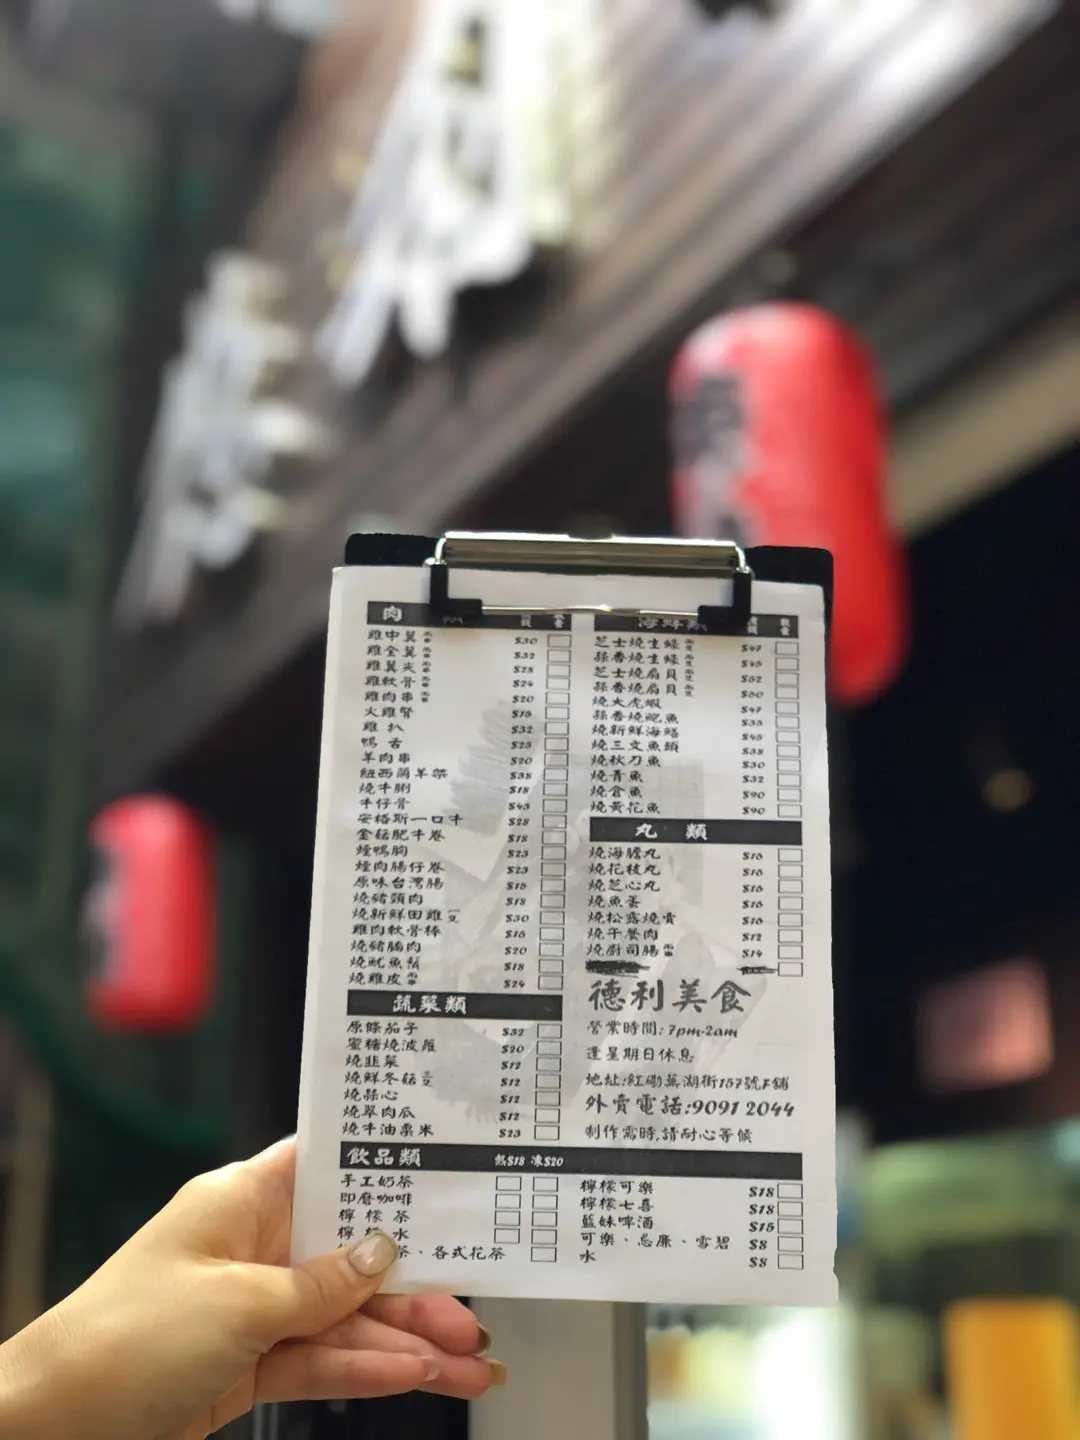 肉 類
雞中翼 兩串 $30
雞全翼 兩串 $32
雞翼尖 兩串 $28
雞軟骨 兩串 $24
雞肉串 兩串 $20
火雞腎 $16
雞扒 $32
鴨舌 $25
羊肉串 $20
紐西蘭羊架 $38
燒牛脷 $18
牛仔骨 $43
安格斯一口牛 $28
金菇肥牛卷 $18
煙鴨胸 $23
煙肉腸仔卷 $23
原味台灣腸 $15
燒豬頸肉 $18
燒新鮮田雞 $30
雞肉軟骨棒 $16
燒豬腩肉 $20
燒魷魚鬚 $18
燒雞皮 兩串 $24
蔬菜類
原條茄子 $32
蜜糖燒波蘿 $20
燒韭菜 $12
燒鮮冬菇 $12
燒蒜心 $12
燒翠肉瓜 $12
燒牛油粟米 $23
海鮮類 數量
芝士燒生蠔 $47
蒜香燒生蠔 $45
芝士燒扇貝 $62
蒜香燒扇貝 $60
燒大虎蝦 $47
蒜香燒魷魚 $35
燒新鮮海鱔 $45
燒三文魚頭 $38
燒秋刀魚 $30
燒青魚 $32
燒倉魚 $90
燒黃花魚 $90
丸 類
燒海膽丸 $16
燒花枝丸 $16
燒芝心丸 $16
燒魚蛋 $16
燒松露燒賣 $16
燒午餐肉 $12
燒廚司腸 兩串 $14
德利美食
營業時間:7pm-2am
逢星期日休息
地址:紅磡蕪湖街157號F舖
外賣電話:9091 2044
制作需時,請耐心等候
飲品類 熱$18 凍$20
手工奶茶
即磨咖啡
檸檬茶
檸檬水
茶、各式花茶
檸檬可樂 $18
檸檬七喜 $18
藍妹啤酒 $15
可樂、忌廉、雪碧 $8
水 $8